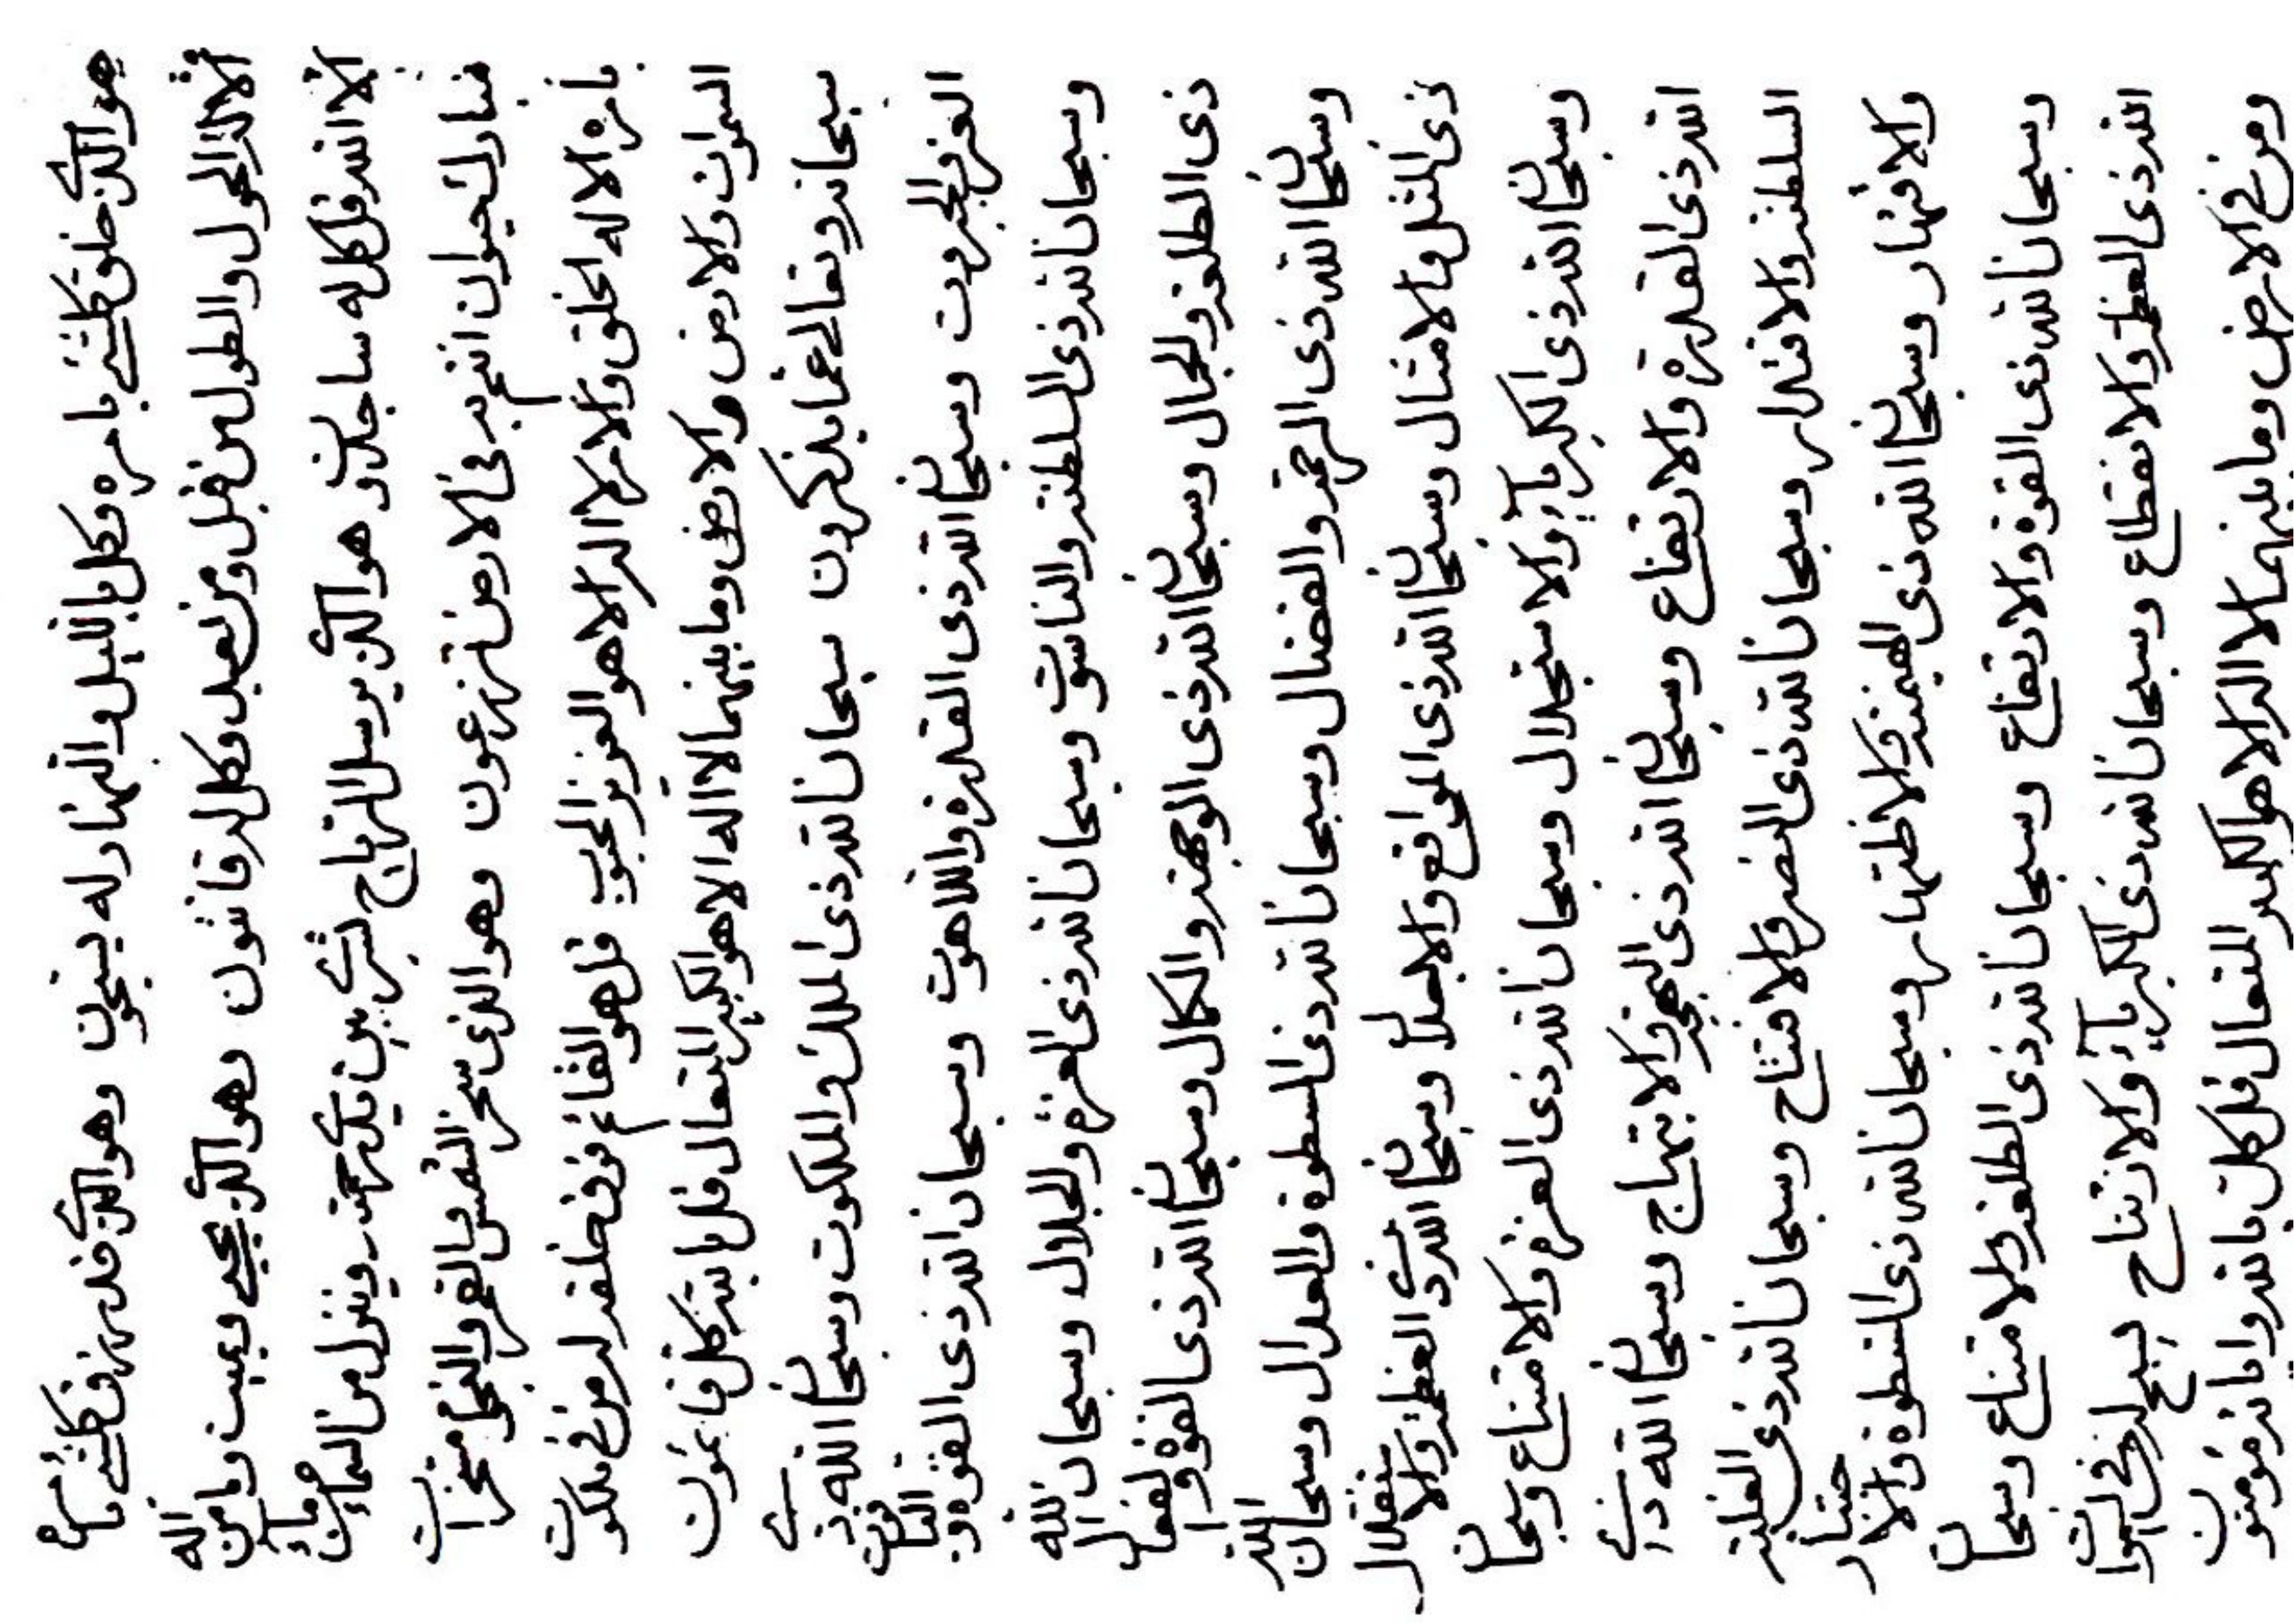 هو الذی خلق کلشیء بامره وکل باللیل والنهار له یسبحون وهو الذی قدر رزق کلشیء بامره
الا له الحول والطول من قبل ومن بعد وکل له قانتون وهو الذی یحیی ویمیت وما من اله
الا الله قل کل له ساجدون هو الذی یرسل الریاح نشرا بین یدی رحمته وینزل من السماء ماء
مبارکا تحیون انتم به فی الارض تزرعون وهو الذی سخر الشمس والقمر والنجوم مسخرات
بامره الا له الخلق والامر لا اله الا هو العزیز المحبوب قل هو القائم فوق خلقه له من فی ملکوت
السموات والارض والارض وما بینهما لا اله الا هو الکبیر المتعال قل یا الله کل فیما یموت
سبحانه وتعالی عما یذکرون سبحان الله ذی الملک والملکوت وسبحان الله ذی
العز والجبروت وسبحان الله ذی القدرة واللاهوت وسبحان الله ذی القوة والیاقوت
وسبحان الله ذی السلطنة والناسوت وسبحان الله ذی العزة والجلال وسبحان الله
ذی الطلعة والجمال وسبحان الله ذی الوجهة والکمال وسبحان الله ذی القوة والفعال
وسبحان الله ذی الرحمة والفضال وسبحان الله ذی السطوة والعدال وسبحان الله
ذی المثل والامثال وسبحان الله ذی المواقع والاجلال وسبحان الله ذی العظمة والاستقلال
وسبحان الله ذی الکبریاء والاستجلال وسبحان الله ذی العزة والامتناع وسبحان
الله ذی القدرة والارتفاع وسبحان الله ذی البهجة والابتهاج وسبحان الله ذی
السلطنة والاقتدار وسبحان الله ذی النصر والافتتاح وسبحان الله ذی الغلبة
والاقتهار وسبحان الله ذی الهیمنة والاظتهار وسبحان الله ذی السطوة والاختیار
وسبحان الله ذی القوة والارتفاع وسبحان الله ذی الطلعة والامتناع وسبحان
الله ذی العظمة والانقطاع وسبحان الله ذی الکبریاء والارتیاح یسبح له من فی السموات
ومن فی الارض وما بینهما لا اله الا هو الکبیر المتعال قل کل بالله وایاته مؤمنون